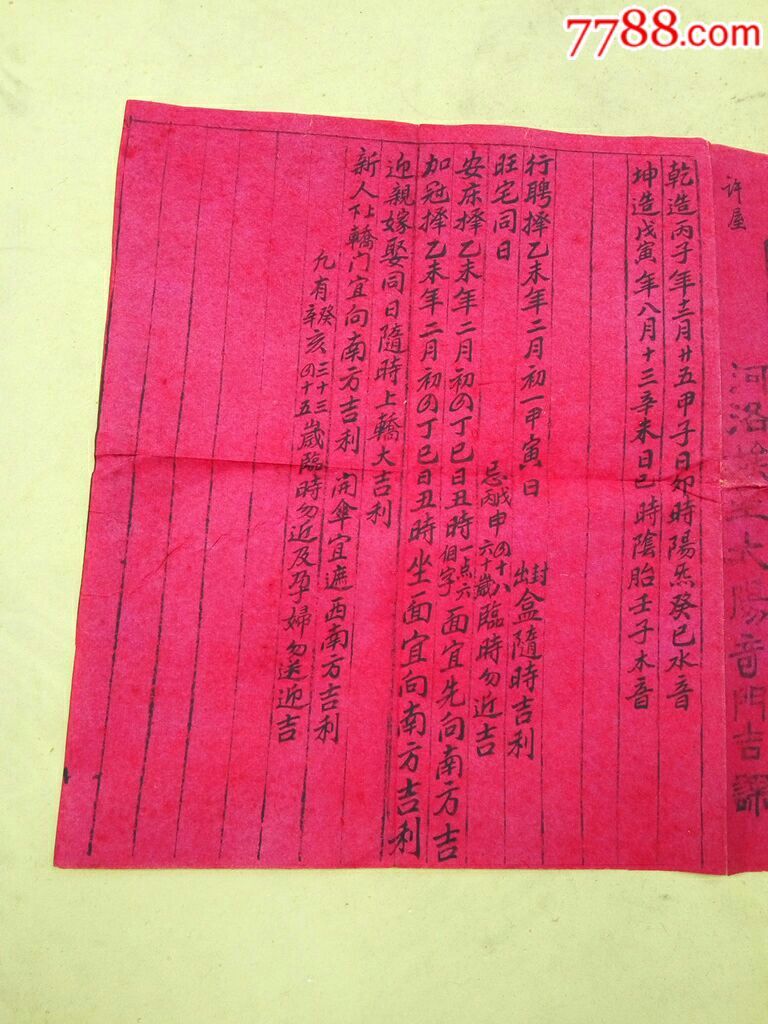 7788.com
许屋
河洛太陽奇門吉課
乾造丙子年十二月廿五甲子日卯時陽炁癸巳水音
坤造戊寅年八月十三辛未日巳時陰胎壬子木音
行聘擇乙未年二月初一甲寅日 封出盒隨時吉利
旺宅同日 忌戊丙申四十八六十歲臨時勿近吉
安床擇乙未年二月初四丁巳日丑時一点六個字面宜先向南方吉
加冠擇乙未年二月初四丁巳日丑時坐面宜向南方吉利
迎親嫁娶同日隨時上轎大吉利
新人上下轎门宜向南方吉利 開傘宜遮西南方吉利
凡有癸辛亥三十三四十五歲臨時勿近及孕婦勿送迎吉